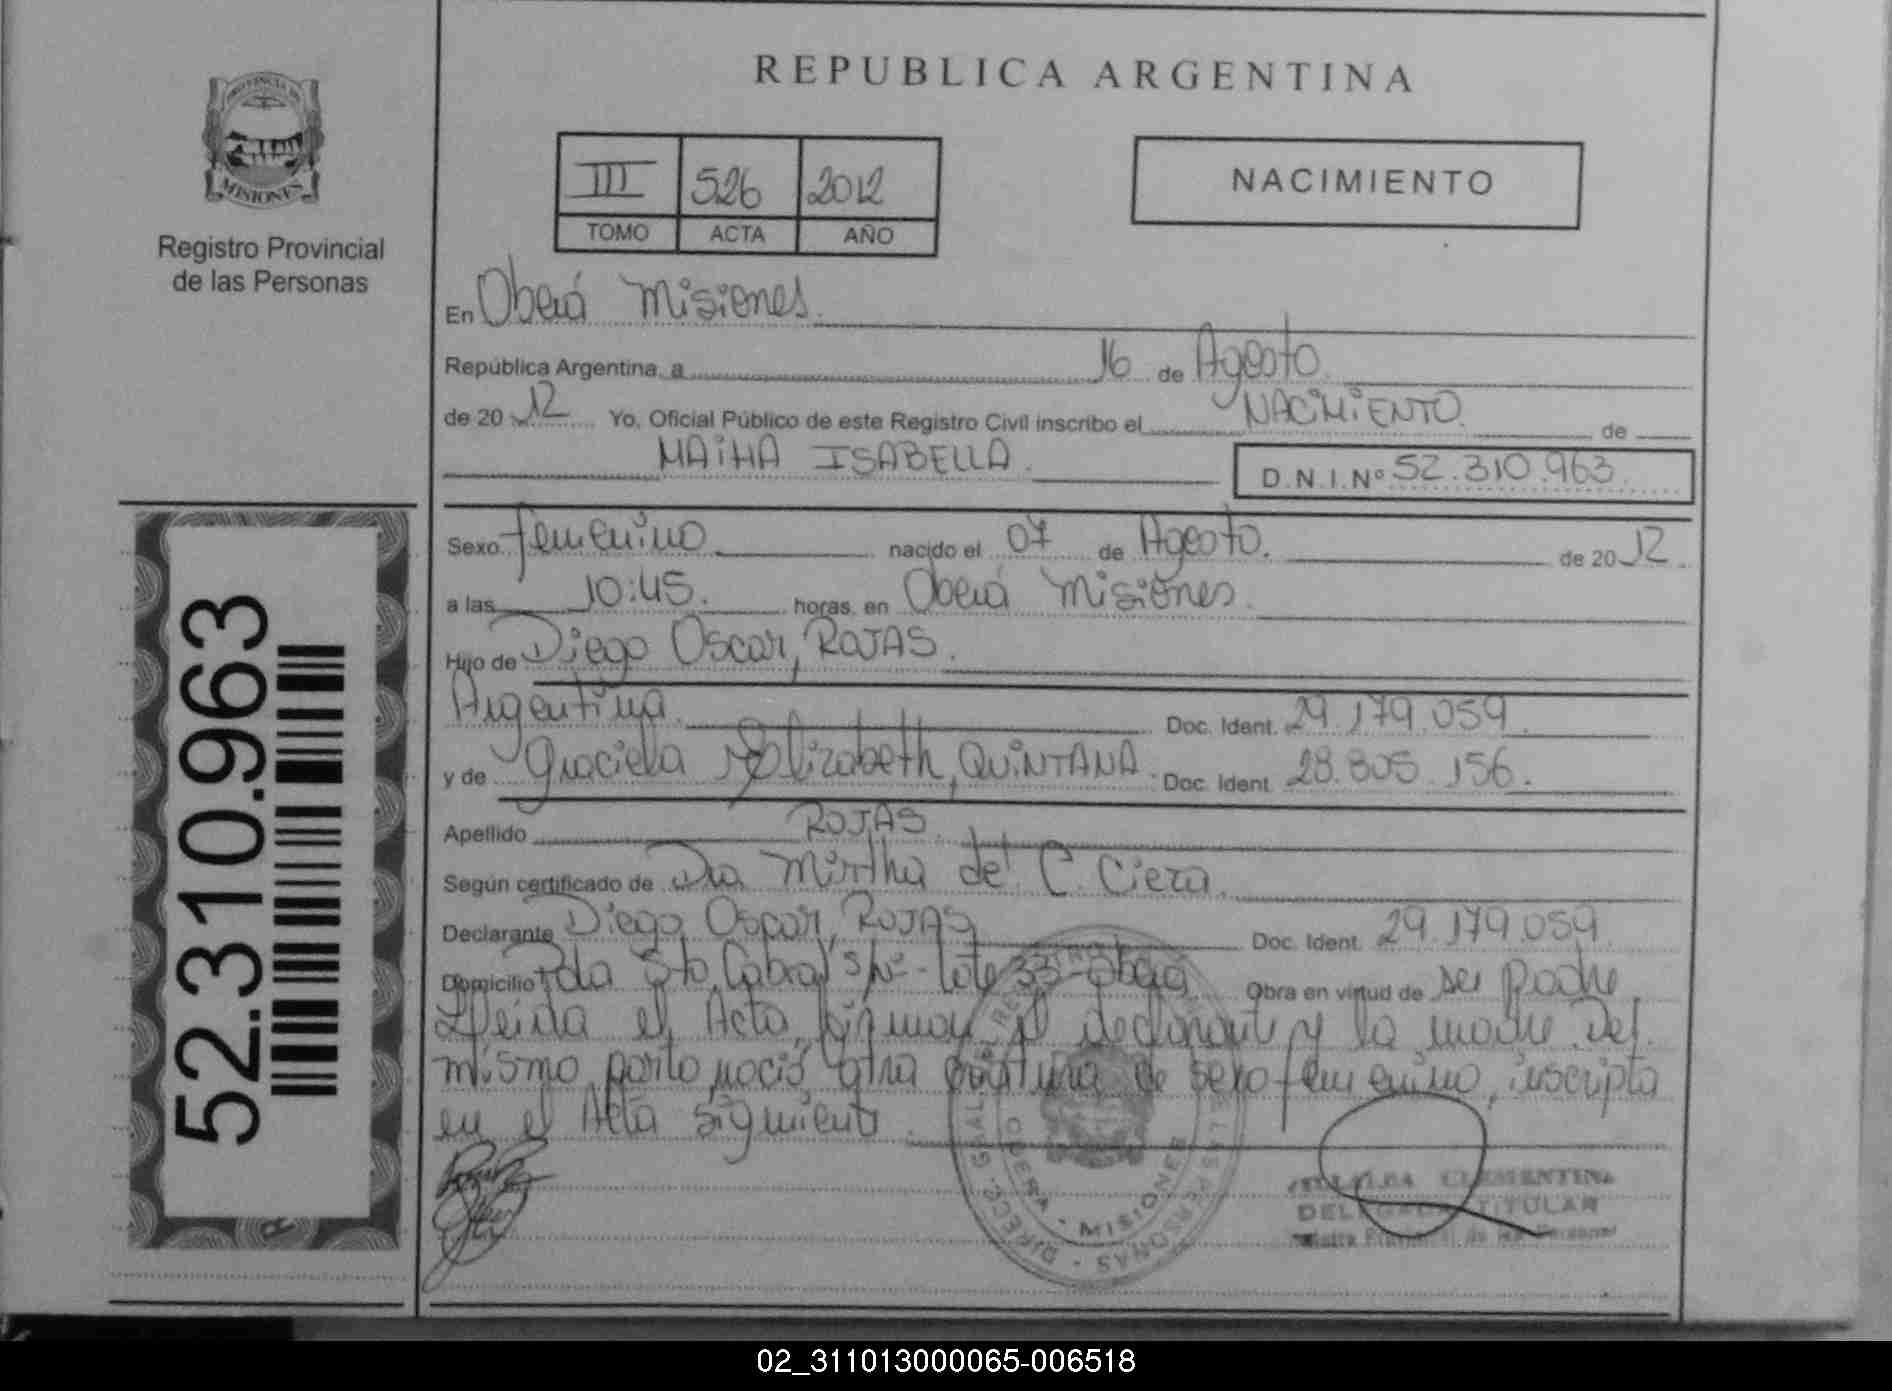 REPUBLICA ARGENTINA
PROVINCIA DE
MISIONES
Registro Provincial
de las Personas
III 526 2012
TOMO ACTA AÑO
NACIMIENTO
En Oberá Misiones.
República Argentina, a 16 de Agosto.
de 20 12 Yo, Oficial Público de este Registro Civil inscribo el NACIMIENTO. de
MAIHA ISABELLA. D.N.I.Nº 52.310.963.
Sexo femenino nacido el 07 de Agosto. de 20 12.
a las 10:45. horas, en Oberá Misiones.
Hijo de Diego Oscar, ROJAS.
Argentina. Doc. Ident. 29.179.059.
y de Graciela Elizabeth, QUINTANA. Doc. Ident. 28.805.156.
Apellido ROJAS.
Según certificado de Dra Mirtha del C. Ciera.
Declarante Diego Oscar, ROJAS Doc. Ident. 29.179.059.
Domicilio Pda Sto. Cabral S/Nº - Lote 33 - Oberá Obra en virtud de ser Padre.
Leída el Acta, firman el declarante y la madre. Del
mismo parto nació otra criatura de sexo femenino, inscripta
en el Acta siguiente.
52.310.963
OBERA - MISIONES
PERSONAS
CLEMENTINA
DELEGADA TITULAR
Registro Provincial de las Personas
02_311013000065-006518